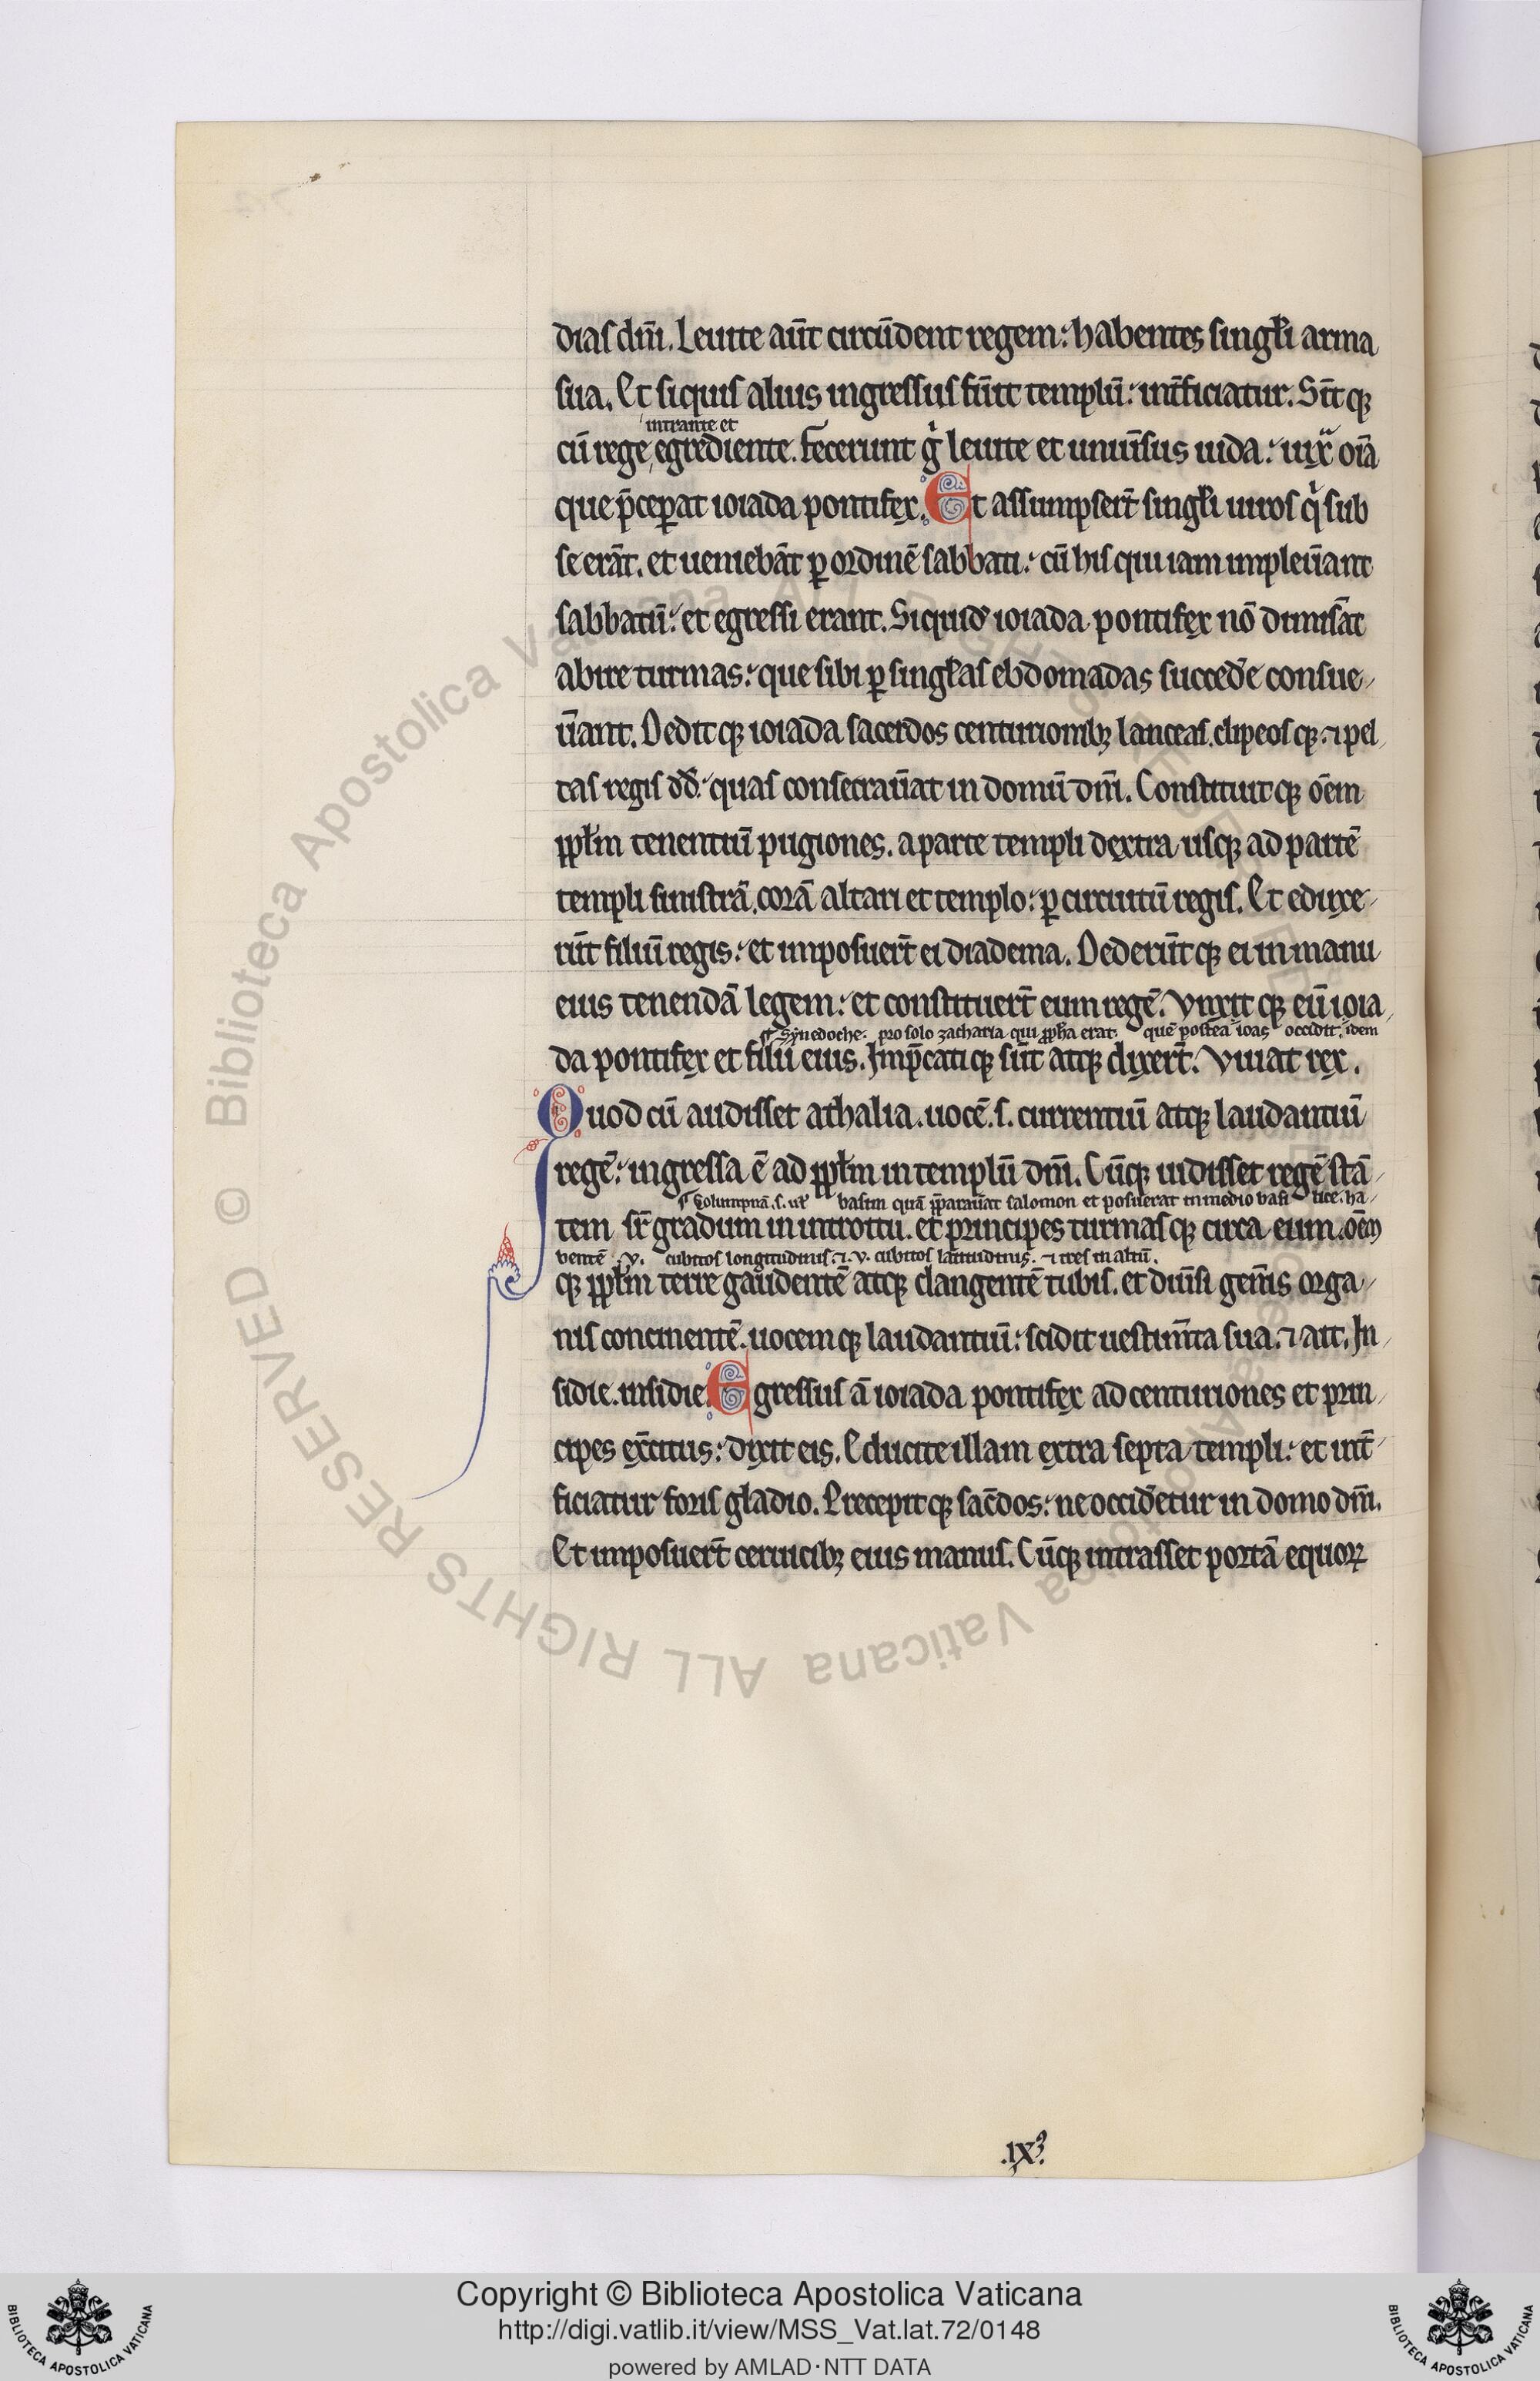 dias dm̄i. Leuite aūt circūdent regem: habentes singłi arma
sua. Et siquis alius ingressus fūit templū: int̄ficiatur. Sn̄tqꝫ
intrante et
cū rege, egrediente. fecerunt gͥ leuite et uniūsus iuda: iuxͣ oīa
que p̄cepat ioiada pontifex. Et assumpsert̄ singłi uiros qͥ sub
se erāt. et ueniebāt ꝑ ordinē sabbati: cū his qui iam impleūant
sabbatū: et egressi erant. Siquid' ioiada pontifex nō dimisāt
abire turmas: que sibi ꝑ singłas ebdomadas succed'e consue
ūant. Deditqꝫ ioiada sacerdos centurionibꝫ lanceas. clipeosqꝫ. ⁊ pel
tas regis dd̄: quas consecraūat in domū dm̄i. Constituitqꝫ oēm
ppłm tenentiū pugiones. a parte templi dextra usqꝫ ad partē
templi sinistrā. corā altari et templo: ꝑ circuitū regis. Et eduxe
rūt filiū regis: et imposuert̄ ei diadema. Dederūtqꝫ ei in manu
eius tenendā legem: et constituert̄ eum regē. Vnxitqꝫ eū ioia
¶ Synedoche. pro solo zacharia qui ꝓpha erat. quē postea ioas occidit. idem
da pontifex et filii eius. Imp̄catiqꝫ sūt atqꝫ dixert̄. Viuat rex.
Quod cū audisset athalia. uocē. s. currentiū atqꝫ laudantiū
regē: ingressa ē ad ppłm in templū dm̄i. Cūqꝫ uidisset regē stā
¶ Columpnā. s. ut' basim quā p̄paraūat salomon et posuerat in medio basilice. ha
tem sr̄ gradum in introitu. et principes turmasqꝫ circa eum. oēm
bentē .v. cubitos longitudinis. ⁊ .v. cubitos latitudinis. ⁊ tres in altū.
qꝫ ppłm terre gaudentē atqꝫ clangentē tubis. et diūsi gen̄is orga
nis concinentē. uocemqꝫ laudantiū: scidit uestim̄ta sua. ⁊ ait. In
sidie. insidie. Egressus ā ioiada pontifex ad centuriones et prin
cipes ex̄citus: dixit eis. Educite illam extra septa templi: et int̄
ficiatur foris gladio. Precepitqꝫ sac̄dos: ne occid'etur in domo dm̄i.
Et imposuert̄ ceruicibꝫ eius manus. Cūqꝫ intrasset portā equoꝝ
.ix⁹.
© Biblioteca Apostolica Vaticana ALL RIGHTS RESERVED
Copyright © Biblioteca Apostolica Vaticana
http://digi.vatlib.it/view/MSS_Vat.lat.72/0148
powered by AMLAD·NTT DATA
BIBLIOTECA APOSTOLICA VATICANA
BIBLIOTECA APOSTOLICA VATICANA